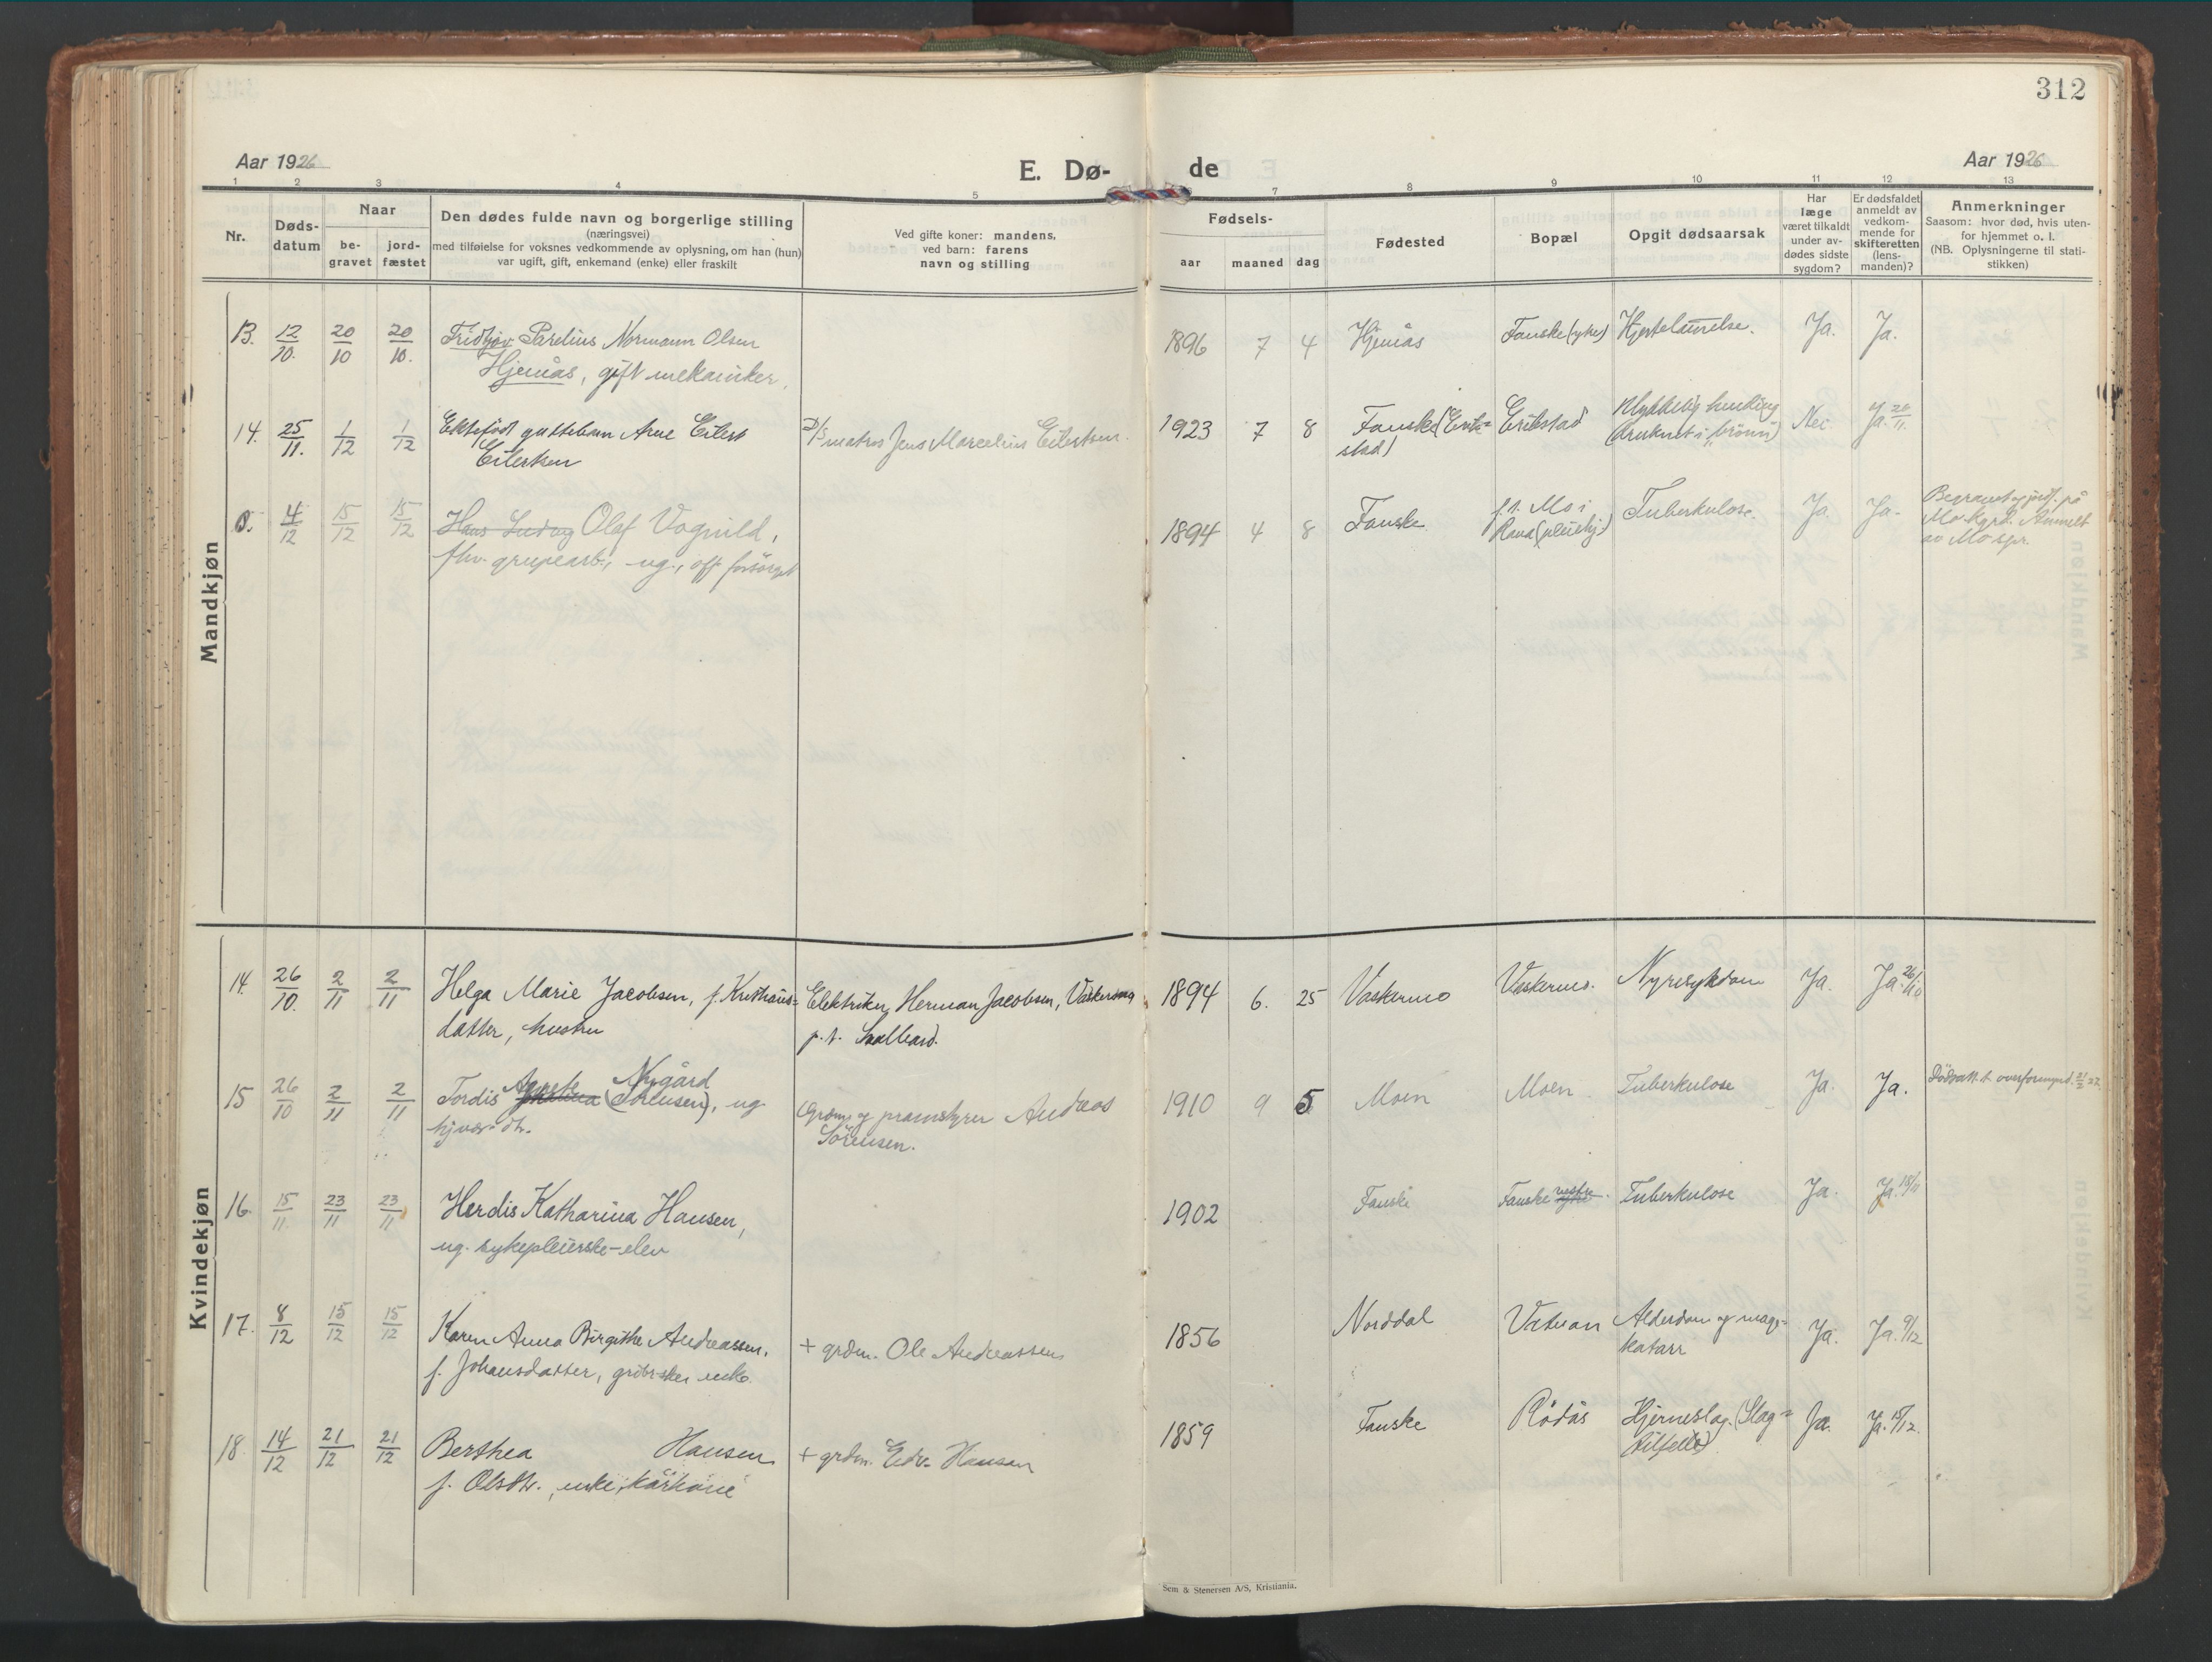 312
Aar 1926
E. Dø-
de
Aar 1926
1 2 3 4 5 7 8 9 10 11 12 13
Nr.
Døds-
datum
Naar
be-
gravet
jord-
fæstet
Den dødes fulde navn og borgerlige stilling
(næringsvei)
med tilføielse for voksnes vedkommende av oplysning, om han (hun)
var ugift, gift, enkemand (enke) eller fraskilt
Ved gifte koner: mandens,
ved barn: farens
navn og stilling
Fødsels-
aar maaned dag
Fødested
Bopæl
Opgit dødsaarsak
Har
læge
været tilkaldt
under av-
dødes sidste
sygdom?
Er dødsfaldet
anmeldt av
vedkom-
mende for
skifteretten
(lens-
manden)?
Anmerkninger
Saasom: hvor død, hvis uten-
for hjemmet o. l.
(NB. Oplysningerne til stati-
stikken)
Mandkjøn
13. 12/10. 20/10 20/10. Fridtjov Parelius Normann Olsen
Hjemås, gift mekaniker.
1896 7 4 Hjemås Fauske (ytre) Hjertelammelse. Ja. Ja.
14. 25/11. 1/12 1/12 Ektefödt guttebarn Arne Eilert
Eilertsen
matros Jens Marcelius Eilertsen.
1923 7 8 Fauske (Erik=
stad)
Erikstad
Ulykkelig hending
(druknet i brönn)
Nei Ja. 26/11.
4/12 15/12 15/12 Hans Ludvig Olaf Vognild,
fhv. grubearb., ug., off. forsörget
1894 4 8 Fauske
p.t. Mo i
Rana (pleiehj)
Tuberkulose. Ja. Ja.
Begravet og jordf. på
Mo kgrd. Anmelt
av Mo spr.
Kvindekjøn
14. 26/10. 2/11 2/11 Helga Marie Jacobsen, f. Kristians=
datter, hustru
Elektriker Herman Jacobsen, Vaskermo
p.t. Svalbard.
1894 6. 25 Vaskermo Vaskermo. Nyresykdom Ja. Ja. 26/10
15 26/10 2/11 2/11 Tordis Agnete (Sörensen) Nygård, ug.
Grdm. og pramstyrer Andreas
Sörensen.
1910 9 5 Moen Moen Tuberkulose Ja. Ja.
Dödsatt. t. overformynd.
16. 15/11. 23/11 23/11 Herdis Katharina Hansen,
ug. sykepleierske-elev
1902 Fauske Fauske vestre. Tuberkulose Ja. Ja. 18/11
17. 8/12 15/12 15/12 Karen Anna Birgithe Andreassen,
f. Johansdatter, enke.
+ grdm. Ole Andreassen
1856 Norddal Vatnan Alderdom og mage-
katarr
Ja. Ja. 9/12
18. 14/12 21/12 21/12 Berthea Hansen
f. Olsdtr., enke, kårkone
+ grdm. Edv. Hansen
1859 Fauske Rödås Hjerneslag. (Slag=
tilfelle)
Ja. Ja. 15/12.
Sem & Stenersen A/S, Kristiania.